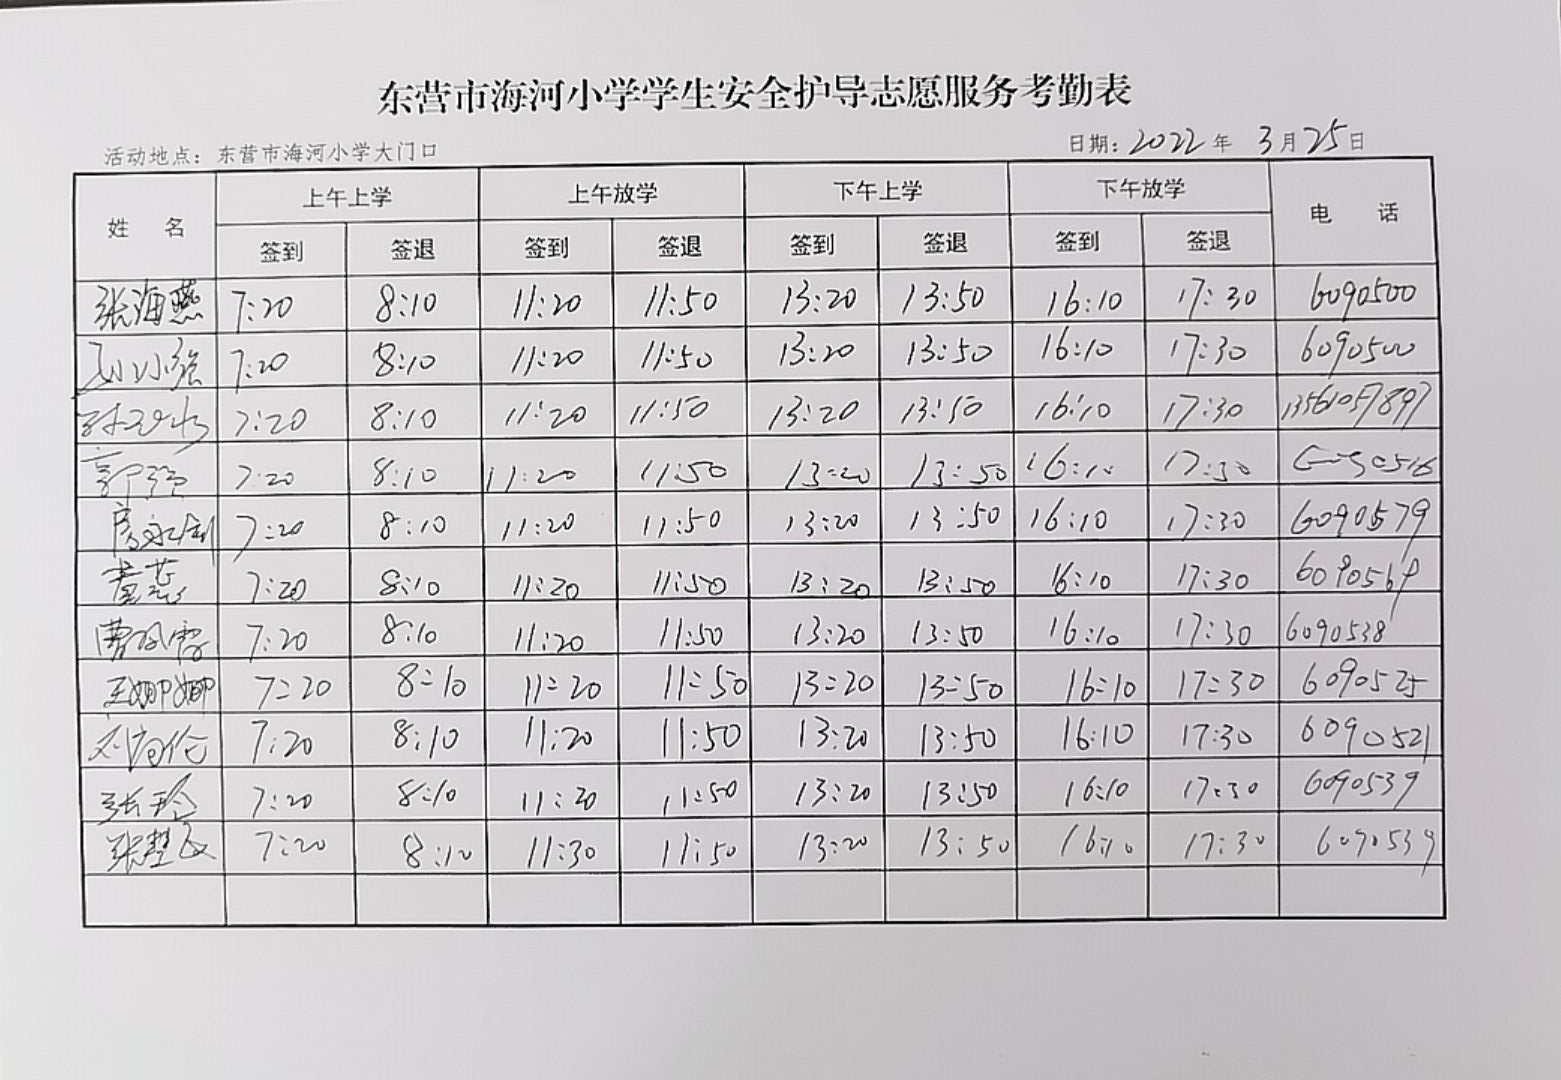 东营市海河小学学生安全护导志愿服务考勤表
活动地点：东营市海河小学大门口 日期：2022年 3月25日
姓 名 上午上学 上午放学 下午上学 下午放学 电 话
签到 签退 签到 签退 签到 签退 签到 签退
张海燕 7:20 8:10 11:20 11:50 13:20 13:50 16:10 17:30 6090500
7:20 8:10 11:20 11:50 13:20 13:50 16:10 17:30 6090500
7:20 8:10 11:20 11:50 13:20 13:50 16:10 17:30 13561057897
7:20 8:10 11:20 11:50 13:20 13:50 16:10 17:30
7:20 8:10 11:20 11:50 13:20 13:50 16:10 17:30 6090579
7:20 8:10 11:20 11:50 13:20 13:50 16:10 17:30
7:20 8:10 11:20 11:50 13:20 13:50 16:10 17:30 6090538
王娜娜 7:20 8:10 11:20 11:50 13:20 13:50 16:10 17:30 6090525
7:20 8:10 11:20 11:50 13:20 13:50 16:10 17:30 6090521
张玲 7:20 8:10 11:20 11:50 13:20 13:50 16:10 17:30 6090539
7:20 8:10 11:30 11:50 13:20 13:50 16:10 17:30 6090539